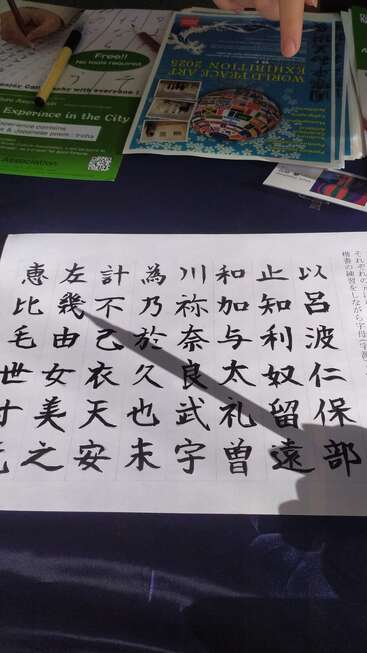 Free!!
No tools required
with everyone!
Experince in the City
Association
WORLD PEACE ART
EXHIBITION 2025
それぞれの
楷書の練習をしながら字母
以呂波仁保部
止知利奴留遠
和加与太礼曽
川祢奈良武宇
為乃於久也末
計不己衣天安
左幾由女美之
恵比毛世寸